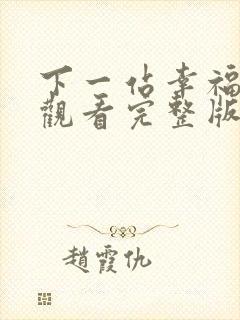 下一佔幸福
觀看完整版
趙霞仇